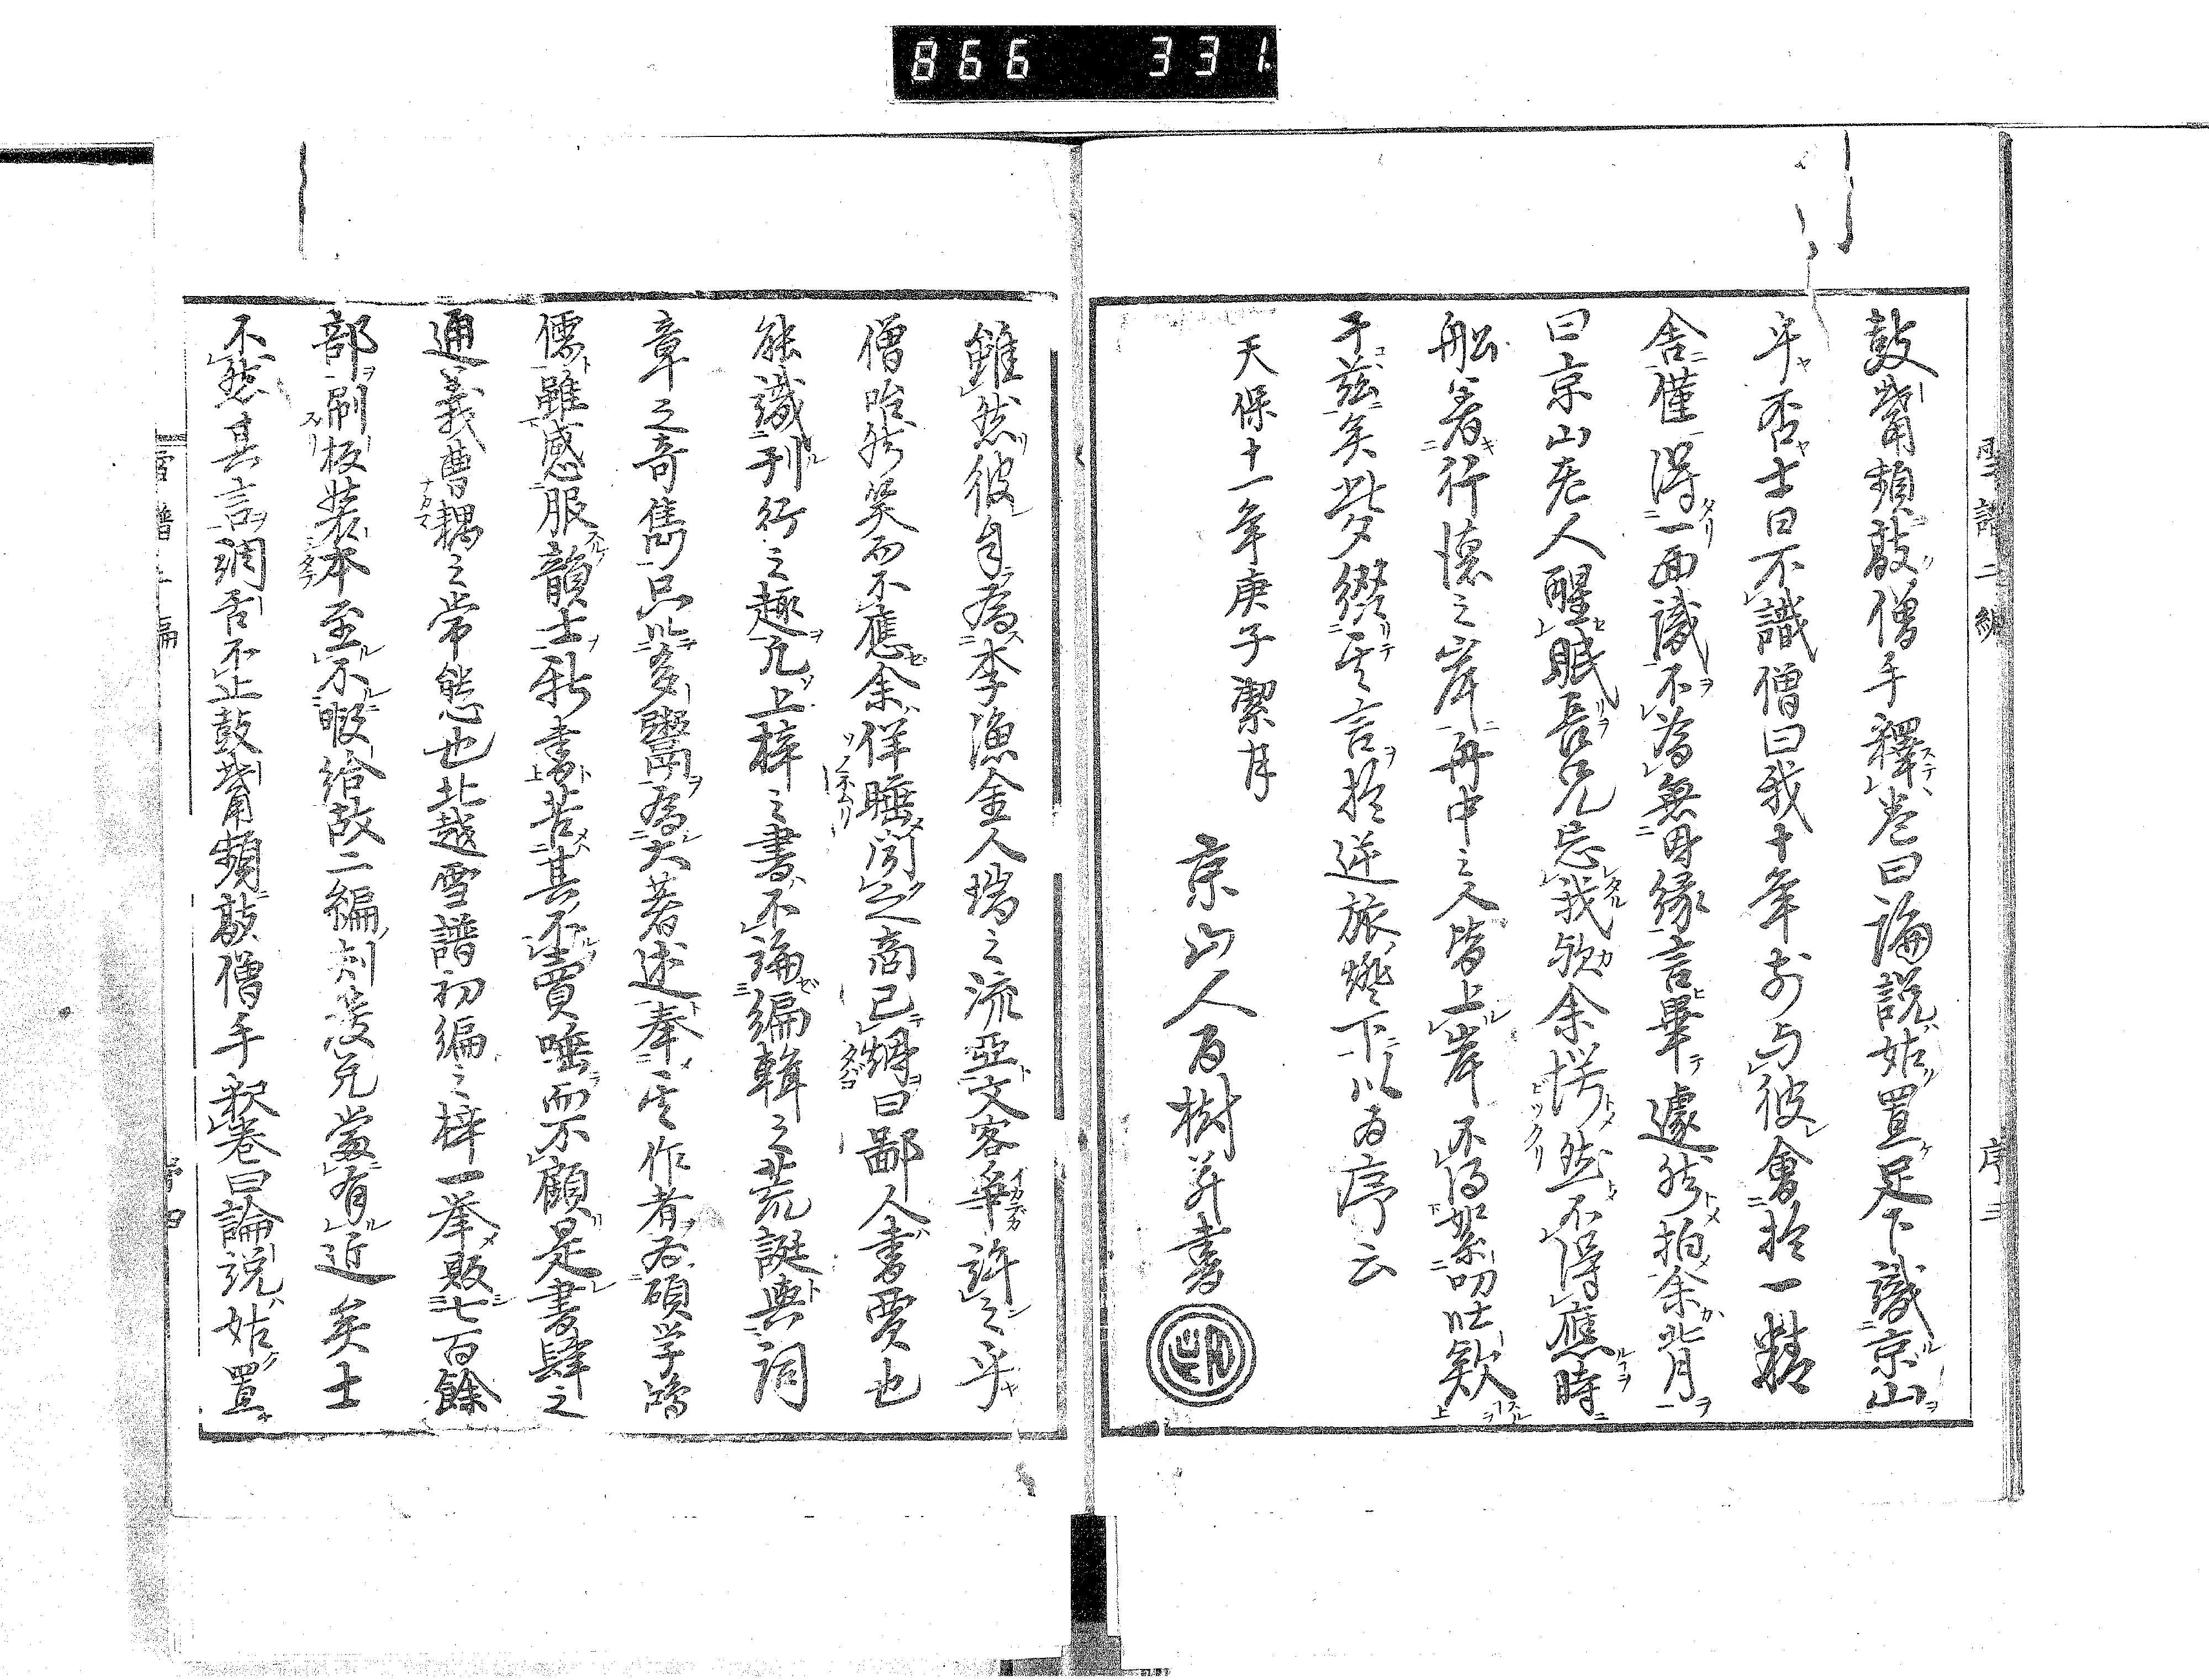 866 331
雪譜二編 序三
鼓觜頻敲僧手釋巻曰論説姑置足下識京山
乎否士曰不識僧曰我十年前与彼會於一精
舎僅得一面識不為無因縁言畢遽然拍余背
曰京山老人醒眠吾兄忘我歟余愕然不得應時
船著行徳之岸舟中之人皆上岸不得絮叨吐欵
于茲矣此夕綴其言於逆旅燈下以為序云
天保十一年庚子潔月
京山人百樹并書
雖然彼自為李漁金人瑞之流亞文客爭許之乎
僧哈然笑而不應余佯睡聞之商已爛曰鄙人書賈也
能識刊行之趣凡上梓之書不論編輯之荒誕與詞
章之奇雋只以多鬻為大著述奉其作者為碩学鴻
儒雖感服韻士新書苦其不賣唾而不顧是書肆之
通義曹耦之常態也北越雪譜初編之梓一挙販七百餘
部刷板装本至不暇給故二編剞發兌當有近矣士
不然其言調舌不止鼓觜頻敲僧手釈巻曰論説姑置
雪譜二編